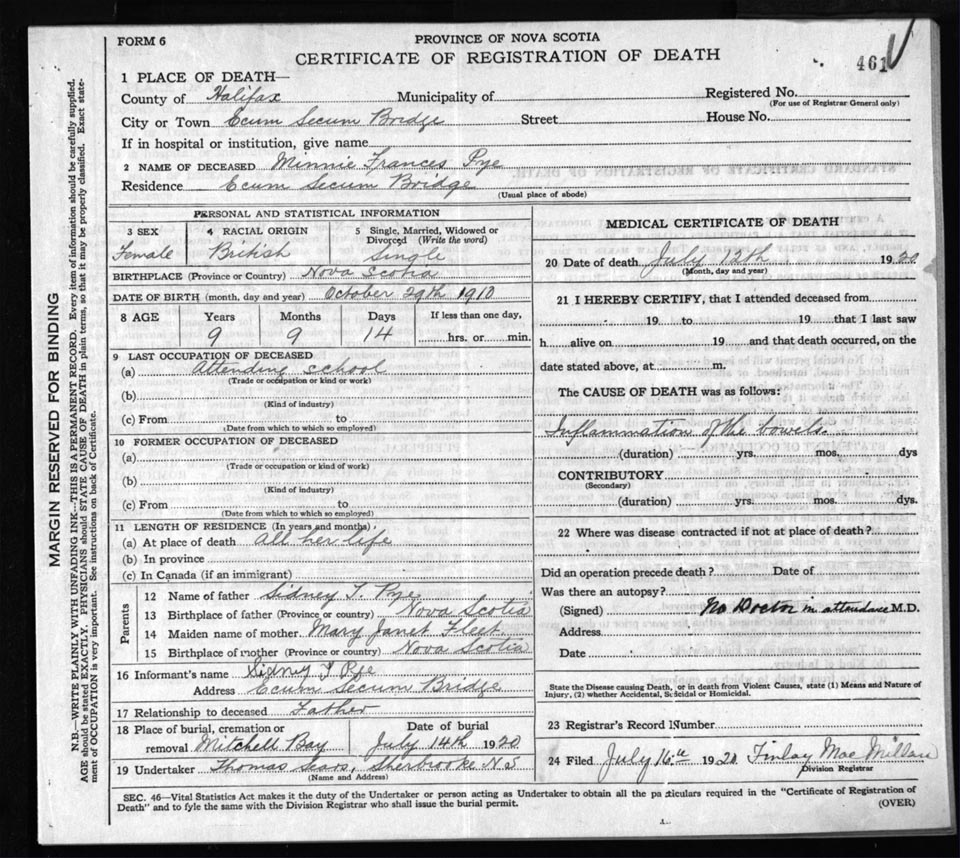 FORM 6
PROVINCE OF NOVA SCOTIA
CERTIFICATE OF REGISTRATION OF DEATH
461
1 PLACE OF DEATH—
County of Halifax Municipality of Registered No.
(For use of Registrar General only)
City or Town Ecum Secum Bridge Street House No.
If in hospital or institution, give name
2 NAME OF DECEASED Minnie Frances Pye
Residence Ecum Secum Bridge
(Usual place of abode)
PERSONAL AND STATISTICAL INFORMATION
3 SEX 4 RACIAL ORIGIN 5 Single, Married, Widowed or Divorced (Write the word)
Female British Single
BIRTHPLACE (Province or Country) Nova Scotia
DATE OF BIRTH (month, day and year) October 29th 1910
8 AGE Years Months Days If less than one day,
9 9 14 hrs. or min.
9 LAST OCCUPATION OF DECEASED
(a) Attending school
(Trade or occupation or kind or work)
(b)
(Kind of industry)
(c) From to
(Date from which to which so employed)
10 FORMER OCCUPATION OF DECEASED
(a)
(Trade or occupation or kind of work)
(b)
(Kind of industry)
(c) From to
(Date from which to which so employed)
11 LENGTH OF RESIDENCE (In years and months)
(a) At place of death All her life
(b) In province
(c) In Canada (if an immigrant)
Parents
12 Name of father Sidney T. Pye
13 Birthplace of father (Province or country) Nova Scotia
14 Maiden name of mother Mary Janet Fleet
15 Birthplace of mother (Province or country) Nova Scotia
16 Informant's name Sidney T Pye
Address Ecum Secum Bridge
17 Relationship to deceased Father
18 Place of burial, cremation or Date of burial
removal Mitchell Bay July 14th 1920
19 Undertaker Thomas Sears, Sherbrooke N S
(Name and Address)
MEDICAL CERTIFICATE OF DEATH
20 Date of death July 12th 1920
(Month, day and year)
21 I HEREBY CERTIFY, that I attended deceased from
19 to 19 that I last saw
h alive on 19 and that death occurred, on the
date stated above, at m.
The CAUSE OF DEATH was as follows:
Inflammation of the bowels.
(duration) yrs. mos. dys
CONTRIBUTORY
(Secondary)
(duration) yrs. mos. dys.
22 Where was disease contracted if not at place of death?
Did an operation precede death? Date of
Was there an autopsy?
(Signed) No Doctor in attendance M.D.
Address
Date
State the Disease causing Death, or in death from Violent Causes, state (1) Means and Nature of
Injury, (2) whether Accidental, Suicidal or Homicidal.
23 Registrar's Record Number
24 Filed July 16th 1920 Finlay Mac Millan
Division Registrar
SEC. 46—Vital Statistics Act makes it the duty of the Undertaker or person acting as Undertaker to obtain all the particulars required in the "Certificate of Registration of
Death" and to fyle the same with the Division Registrar who shall issue the burial permit.
(OVER)
MARGIN RESERVED FOR BINDING
N.B.—WRITE PLAINLY WITH UNFADING INK—THIS IS A PERMANENT RECORD. Every item of information should be carefully supplied.
AGE should be stated EXACTLY. PHYSICIANS should STATE CAUSE OF DEATH in plain terms, so that it may be properly classified. Exact state-
ment of OCCUPATION is very important. See instructions on back of Certificate.